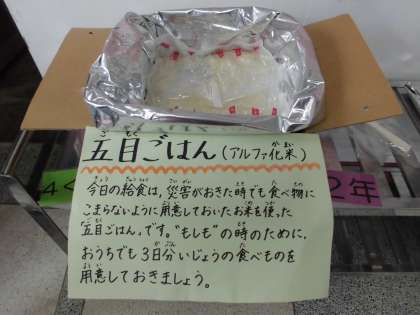 五目ごはん(アルファ化米)
今日の給食は、災害がおきた時でも食べ物に
こまらないように用意しておいたお米を使った
"五目ごはん"です。"もしも"の時のために、
おうちでも3日分いじょうの食べものを
用意しておきましょう。
2年